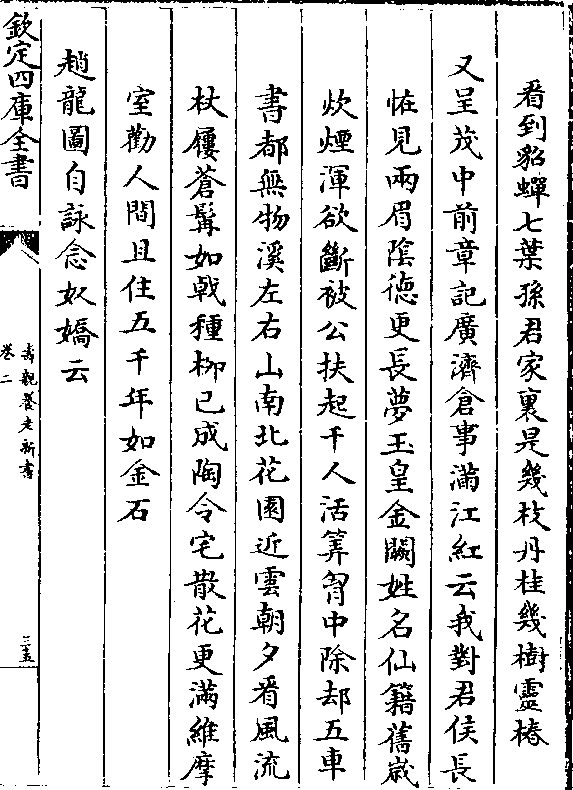 看到貂蟬七葉孫君家裏是幾枝丹桂幾樹靈椿
又呈茂中前章記廣濟倉事滿江紅云我對君侯長
恠見兩眉陰德更長夢玉皇金闕姓名仙籍舊歳
炊煙渾欲斷被公扶起千人活筭胷中除却五車
書都無物溪左右山南北花園近雲朝夕看風流
杖屨蒼髯如戟種柳已成陶令宅散花更滿維摩
室勸人間且住五千年如金石
趙龍圖自詠念奴嬌云
欽定四庫全書
壽親養老新書
卷二
三五